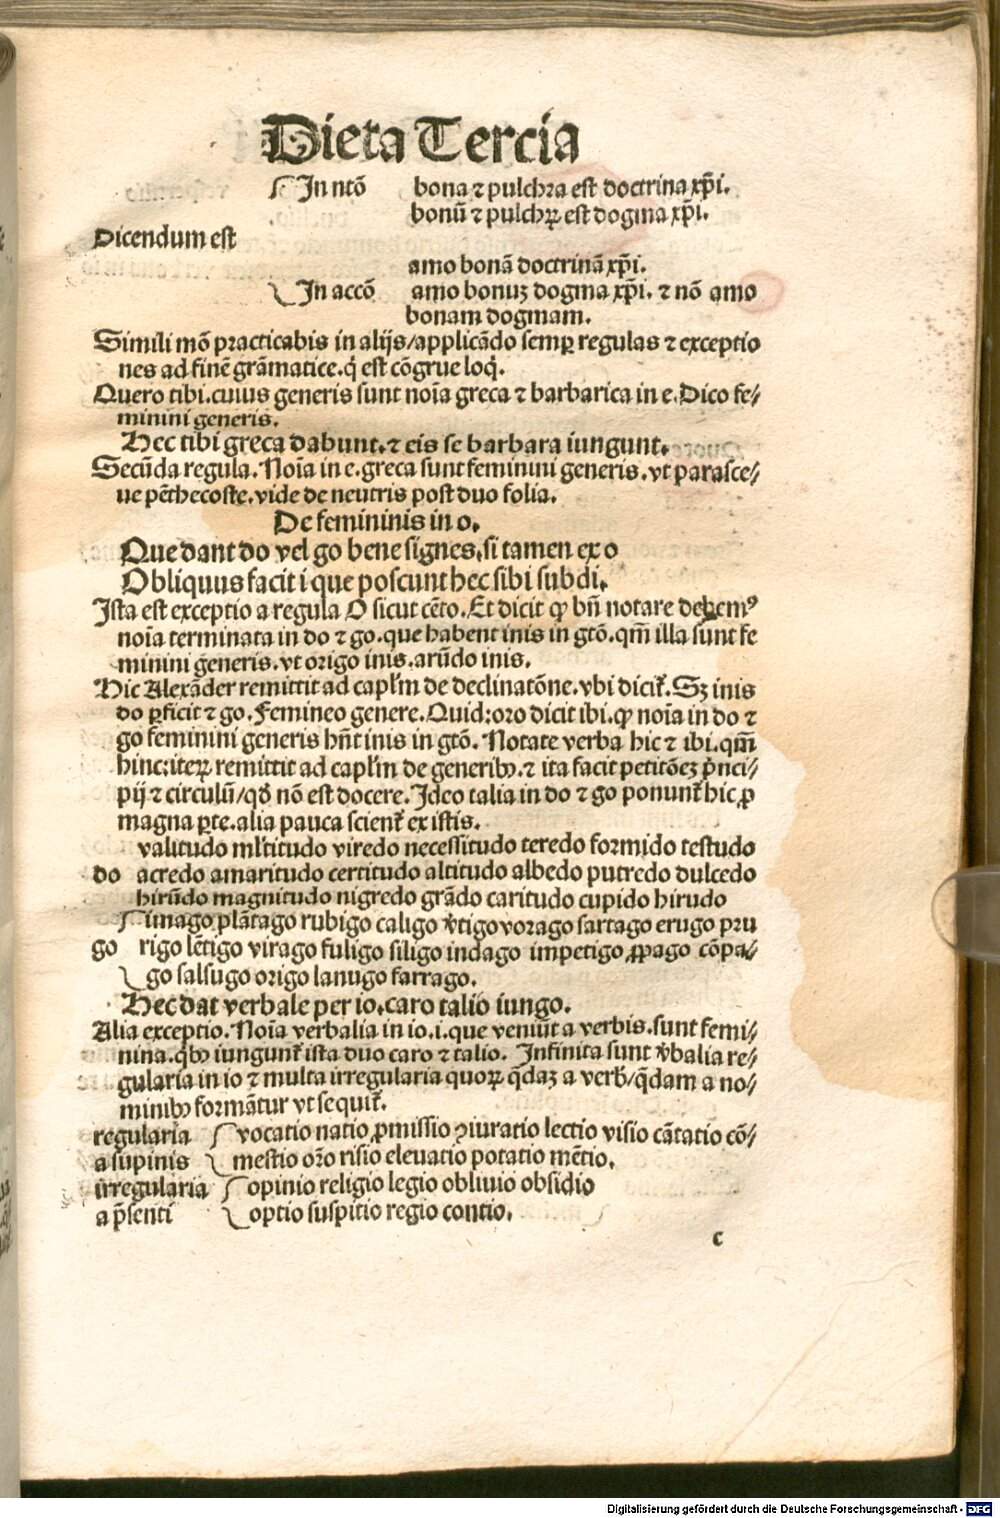 Dieta Tercia
In ntō bona ⁊ pulchra est doctrina xp̄i.
bonū ⁊ pulchꝝ est dogma xp̄i.
Dicendum est
amo bonā doctrinā xp̄i.
In accō amo bonuꝫ dogma xp̄i. ⁊ nō amo
bonam dogmam.
Simili mō practicabis in alijs/applicādo semꝑ regulas ⁊ exceptio
nes ad finē grāmatice. q̇ est cōgrue loq̇.
Quero tibi. cuius generis sunt noīa greca ⁊ barbarica in e. Dico fe⸗
minini generis.
Hec tibi greca dabunt. ⁊ eis se barbara iungunt.
Secūda regula. Noīa in e. greca sunt feminini generis. vt parasce⸗
ue pēthecoste. vide de neutris post duo folia.
De femininis in o.
Que dant do vel go bene signes. si tamen ex o
Obliquus facit i que poscunt hec sibi subdi.
Ista est exceptio a regula O sicut cēto. Et dicit ꝙ bn̄ notare debemꝰ
noīa terminata in do ⁊ go. que habent inis in gtō. qm̄ illa sunt fe
minini generis. vt origo inis. arūdo inis.
Hic Alexāder remittit ad capl'm de declinatōne. vbi dicit᷑. Sꝫ inis
do ꝑficit ⁊ go. Femineo genere. Quid: oro dicit ibi. ꝙ noīa in do ⁊
go feminini generis hn̄t inis in gtō. Notate verba hic ⁊ ibi. qm̄
hinc: iteꝝ remittit ad capl'm de generibꝰ. ⁊ ita facit petitōeꝫ p̄nci⸗
pij ⁊ circulū/qd̄ nō est docere. Ideo talia in do ⁊ go ponunt᷑ hic ꝓ
magna ꝑte. alia pauca scient᷑ ex istis.
valitudo ml'titudo viredo necessitudo teredo formido testudo
do acredo amaritudo certitudo altitudo albedo putredo dulcedo
hirūdo magnitudo nigredo grādo caritudo cupido hirudo
imago plātago rubigo caligo v̄tigo vorago sartago erugo pru
go rigo lētigo virago fuligo siligo indago impetigo ꝓpago cōpa⸗
go salsugo origo lanugo farrago.
Hec dat verbale per io. caro talio iungo.
Alia exceptio. Noīa verbalia in io. i. que veniūt a verbis. sunt femi⸗
nina. qbꝰ iungunt᷑ ista duo caro ⁊ talio. Infinita sunt v̄balia re⸗
gularia in io ⁊ multa irregularia quoꝝ q̄daꝫ a verb̄/q̄dam a no⸗
minibꝰ formātur vt sequit᷑.
regularia vocatio natio ꝓmissio ꝯiuratio lectio visio cātatio cō⸗
a supinis mestio orō risio eleuatio potatio mētio.
irregularia opinio religio legio obliuio obsidio
a p̄senti optio suspitio regio contio.
c
Digitalisierung gefördert durch die Deutsche Forschungsgemeinschaft - DFG